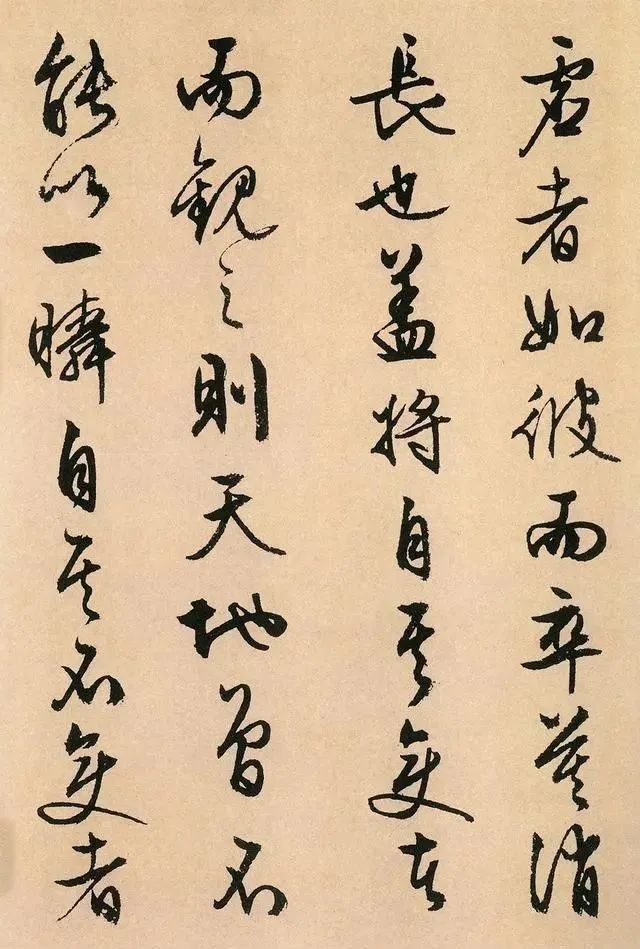 虛者如彼而卒莫消
長也盖將自其變者
而觀之則天地曾不
能以一瞬自其不變者